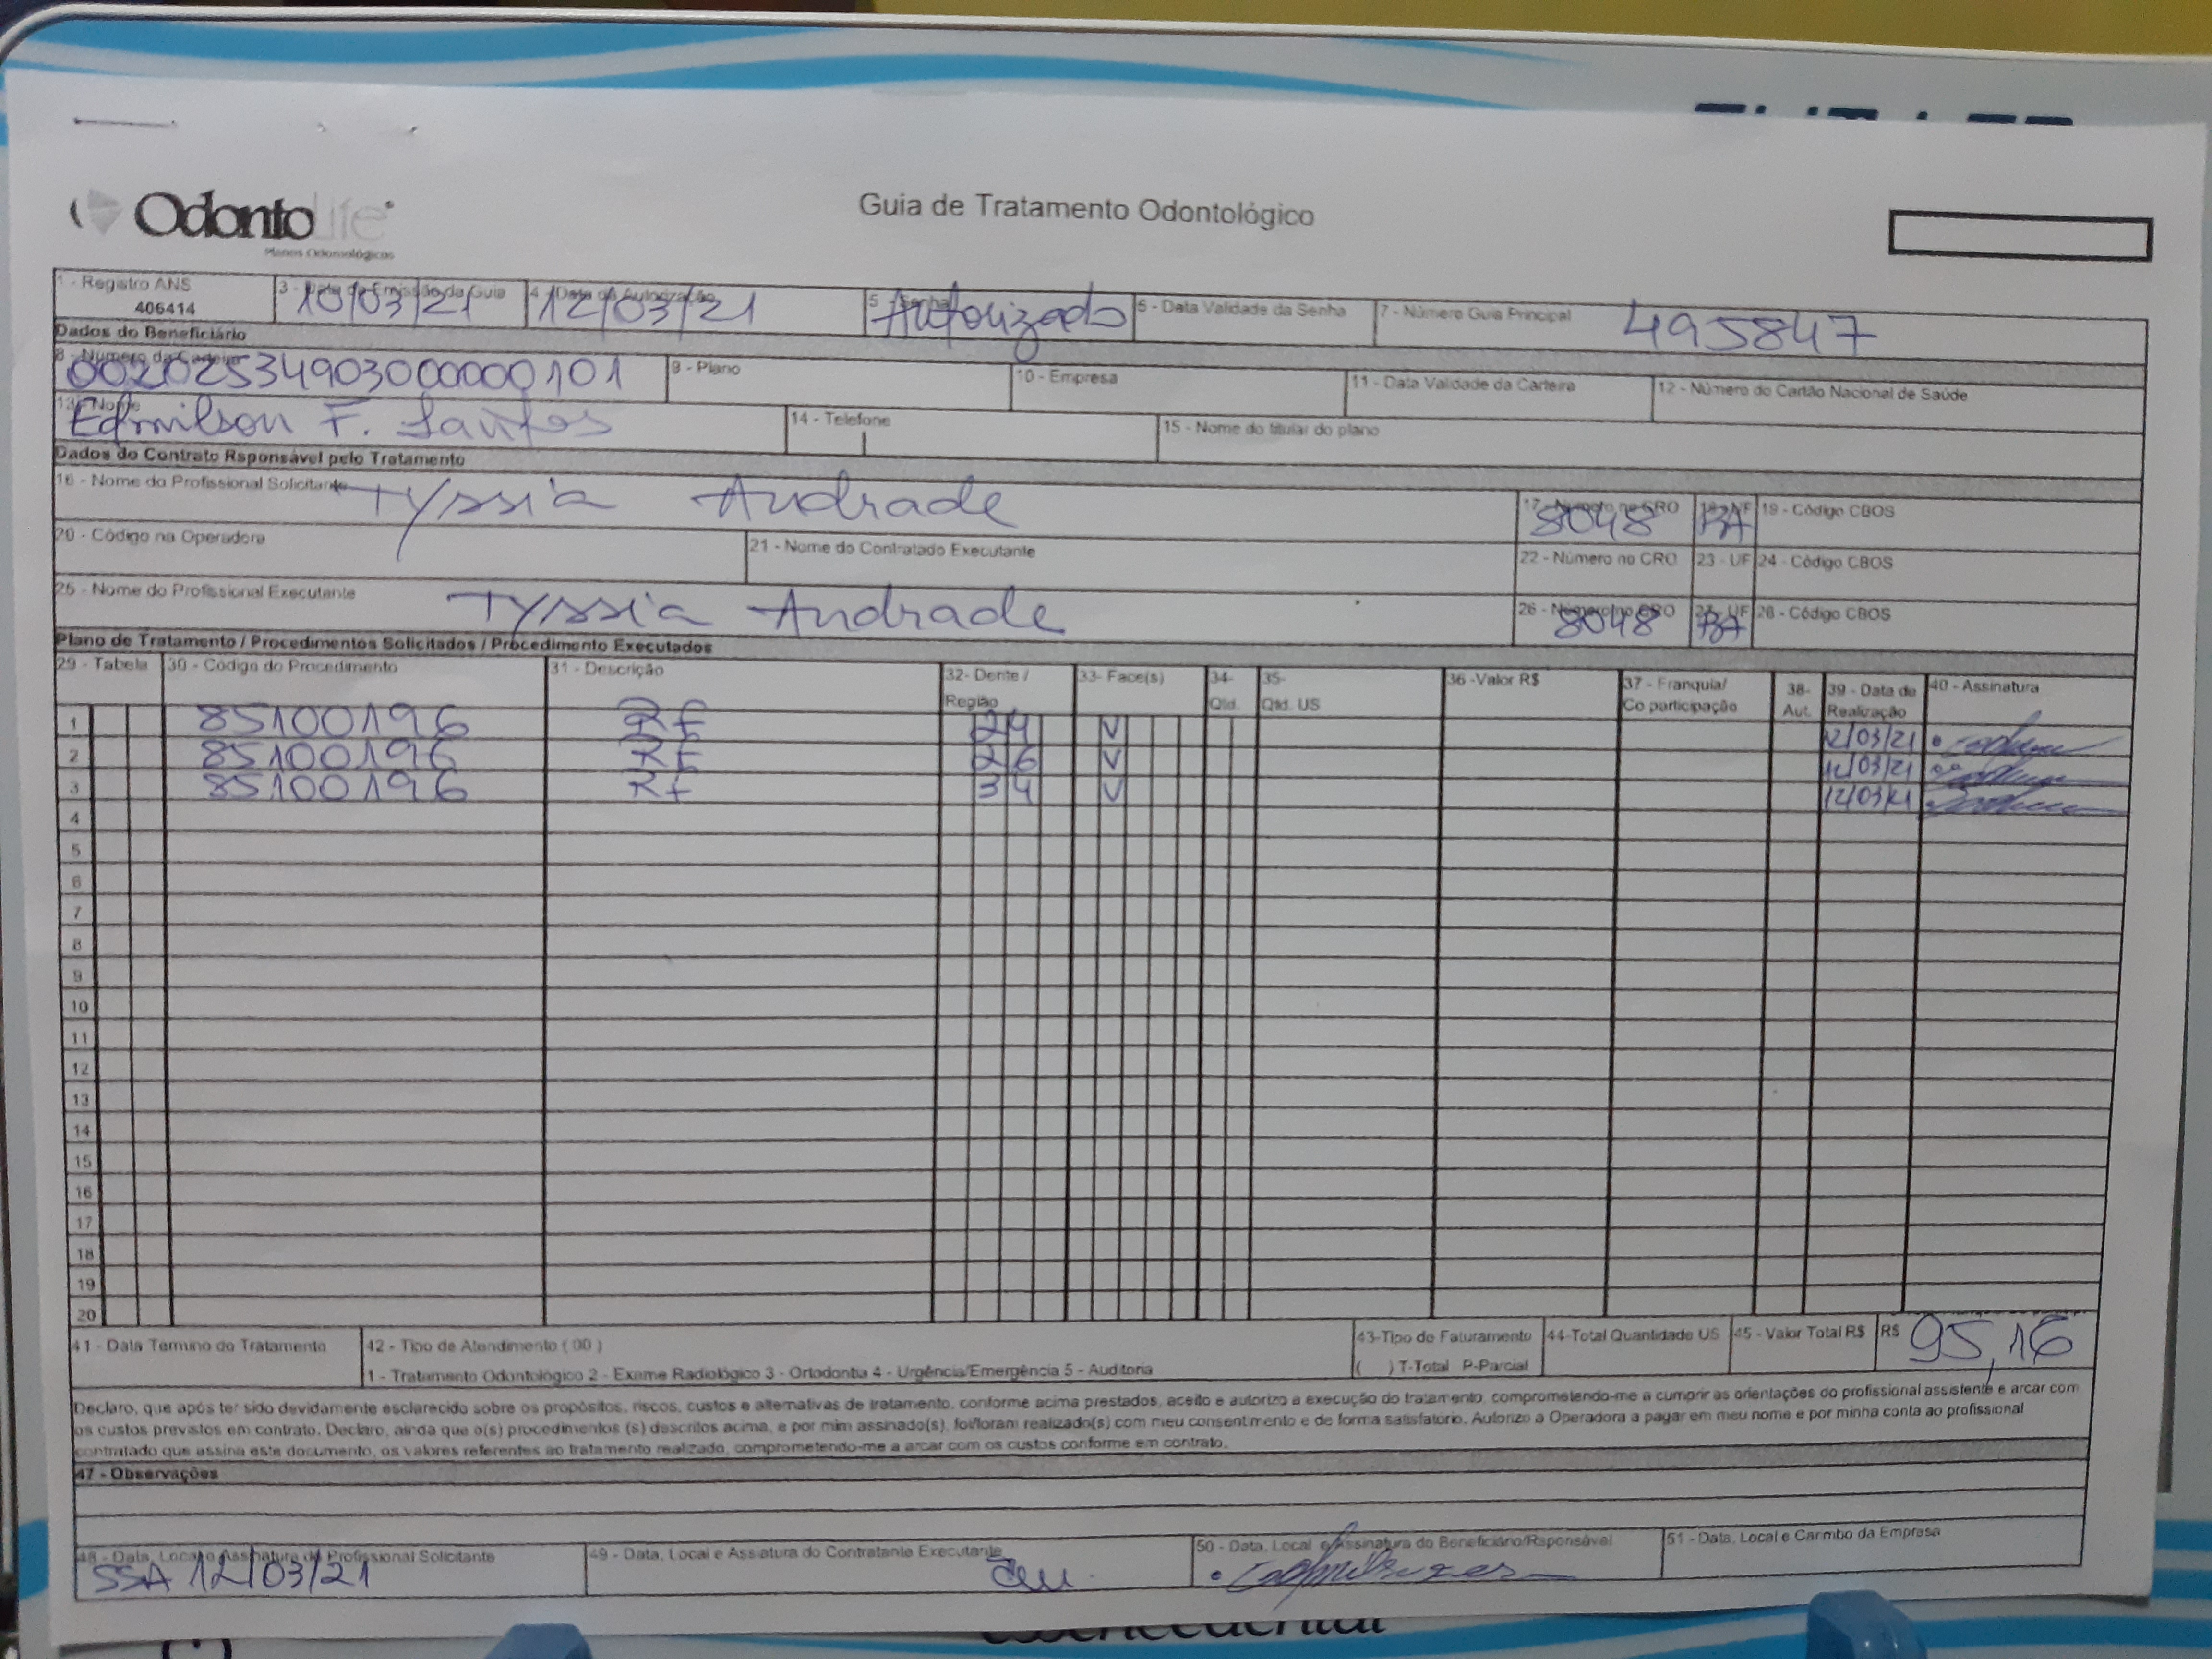 OdontoLife
Planos Odontológicos
Guia de Tratamento Odontológico
1 - Registro ANS
406414
3 - Data de Emissão da Guia
10/03/21
4 - Data da Autorização
12/03/21
5 - Senha
Autorizado
6 - Data Validade da Senha
7 - Número Guia Principal
495847
Dados do Beneficiário
8 - Número da Carteira
00202534903000000101
9 - Plano
10 - Empresa
11 - Data Validade da Carteira
12 - Número do Cartão Nacional de Saúde
13 - Nome
Edmilson F. Santos
14 - Telefone
15 - Nome do titular do plano
Dados do Contrato Rsponsável pelo Tratamento
16 - Nome do Profissional Solicitante
Tyssia Andrade
17 - Número no CRO
8048
18 - UF
BA
19 - Código CBOS
20 - Código na Operadora
21 - Nome do Contratado Executante
22 - Número no CRO
23 - UF
24 - Código CBOS
25 - Nome do Profissional Executante
Tyssia Andrade
26 - Número no CRO
8048
27 - UF
BA
28 - Código CBOS
Plano de Tratamento / Procedimentos Solicitados / Procedimento Executados
29 - Tabela 30 - Código do Procedimento 31 - Descrição 32- Dente / Região 33- Face(s) 34- Qtd. 35- Qtd. US 36 -Valor R$ 37 - Franquia/ Co participação 38- Aut. 39 - Data de Realização 40 - Assinatura
1 85100196 Rf 24 V 12/03/21
2 85100196 Rf 26 V 12/03/21
3 85100196 Rf 34 V 12/03/21
4
5
6
7
8
9
10
11
12
13
14
15
16
17
18
19
20
41 - Data Termino do Tratamento
42 - Tipo de Atendimento ( 00 )
1 - Tratamento Odontológico 2 - Exame Radiológico 3 - Ortodontia 4 - Urgência/Emergência 5 - Auditoria
43-Tipo de Faturamento
( ) T-Total P-Parcial
44-Total Quantidade US
45 - Valor Total R$
R$ 95,16
Declaro, que após ter sido devidamente esclarecido sobre os propósitos, riscos, custos e alternativas de tratamento, conforme acima prestados, aceito e autorizo a execução do tratamento, comprometendo-me a cumprir as orientações do profissional assistente e arcar com
os custos previstos em contrato. Declaro, ainda que o(s) procedimentos (s) descritos acima, e por mim assinado(s), foi/foram realizado(s) com meu consentimento e de forma satisfatório. Autorizo a Operadora a pagar em meu nome e por minha conta ao profissional
contratado que assina este documento, os valores referentes ao tratamento realizado, comprometendo-me a arcar com os custos conforme em contrato.
47 - Observações
48 - Data, Local e Assinatura do Profissional Solicitante
SSA 12/03/21
49 - Data, Local e Assiatura do Contratante Executante
50 - Data, Local e Assinatura do Beneficiário/Rsponsável
51 - Data, Local e Carimbo da Empresa